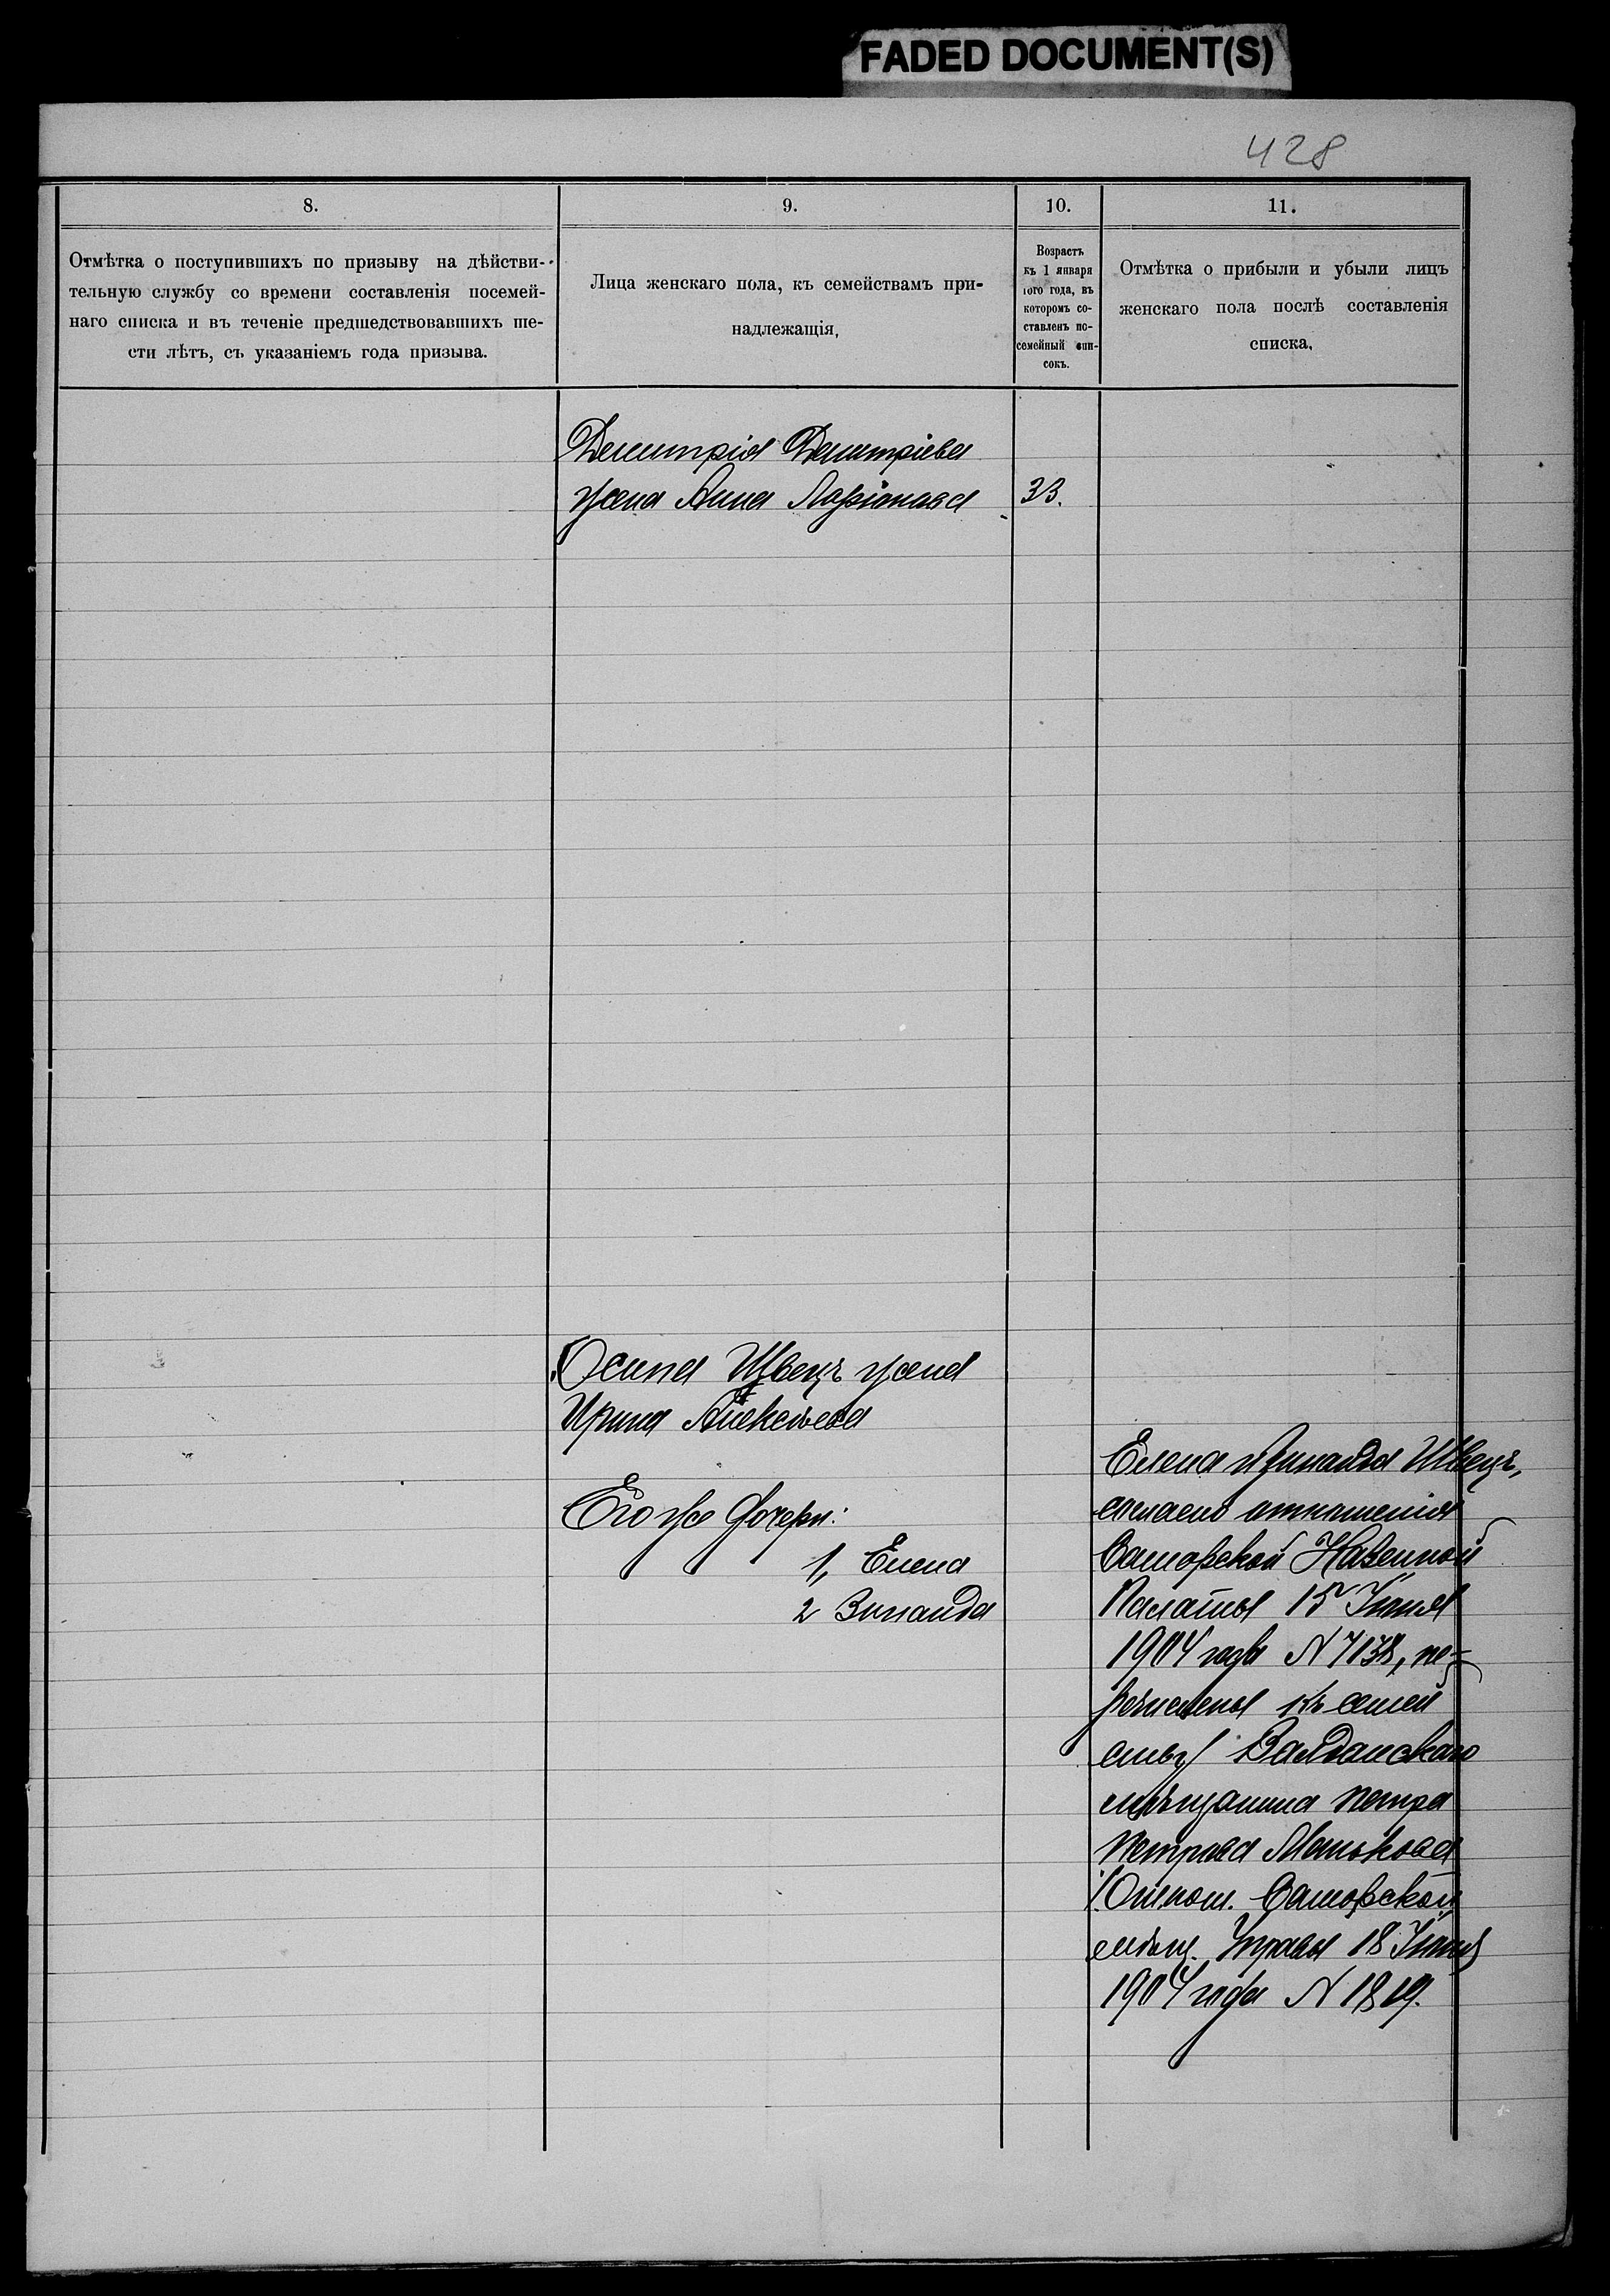 FADED DOCUMENT(S)
428
8.
9.
10.
11.
Отмѣтка о поступившихъ по призыву на дѣйстви-
тельную службу со времени составленія посемей-
наго списка и въ теченіе предшедствовавшихъ ше-
сти лѣтъ, съ указаніемъ года призыва.
Лица женскаго пола, къ семействамъ при-
надлежащія,
Возрастъ
къ 1 января
того года, въ
которомъ со-
ставленъ по-
семейный спи-
сокъ.
Отмѣтка о прибыли и убыли лицъ
женскаго пола послѣ составленія
списка.
Димитрія Димитріева
жена Анна Ларіонова 33.
Осипа Швецъ жена
Ирина Алексѣева
Его же дочери:
1, Елена
2 Зинаида
Елена и Зинаида Швецъ,
согласно отношенія
Самарской Казенной
Палаты 15 Іюня
1904 года N 7138, пе-
речислены къ семей
ству
мѣщанина Петра
Петрова
Самарской
мѣщ. Управы 18 Іюня
1904 года N 1819.